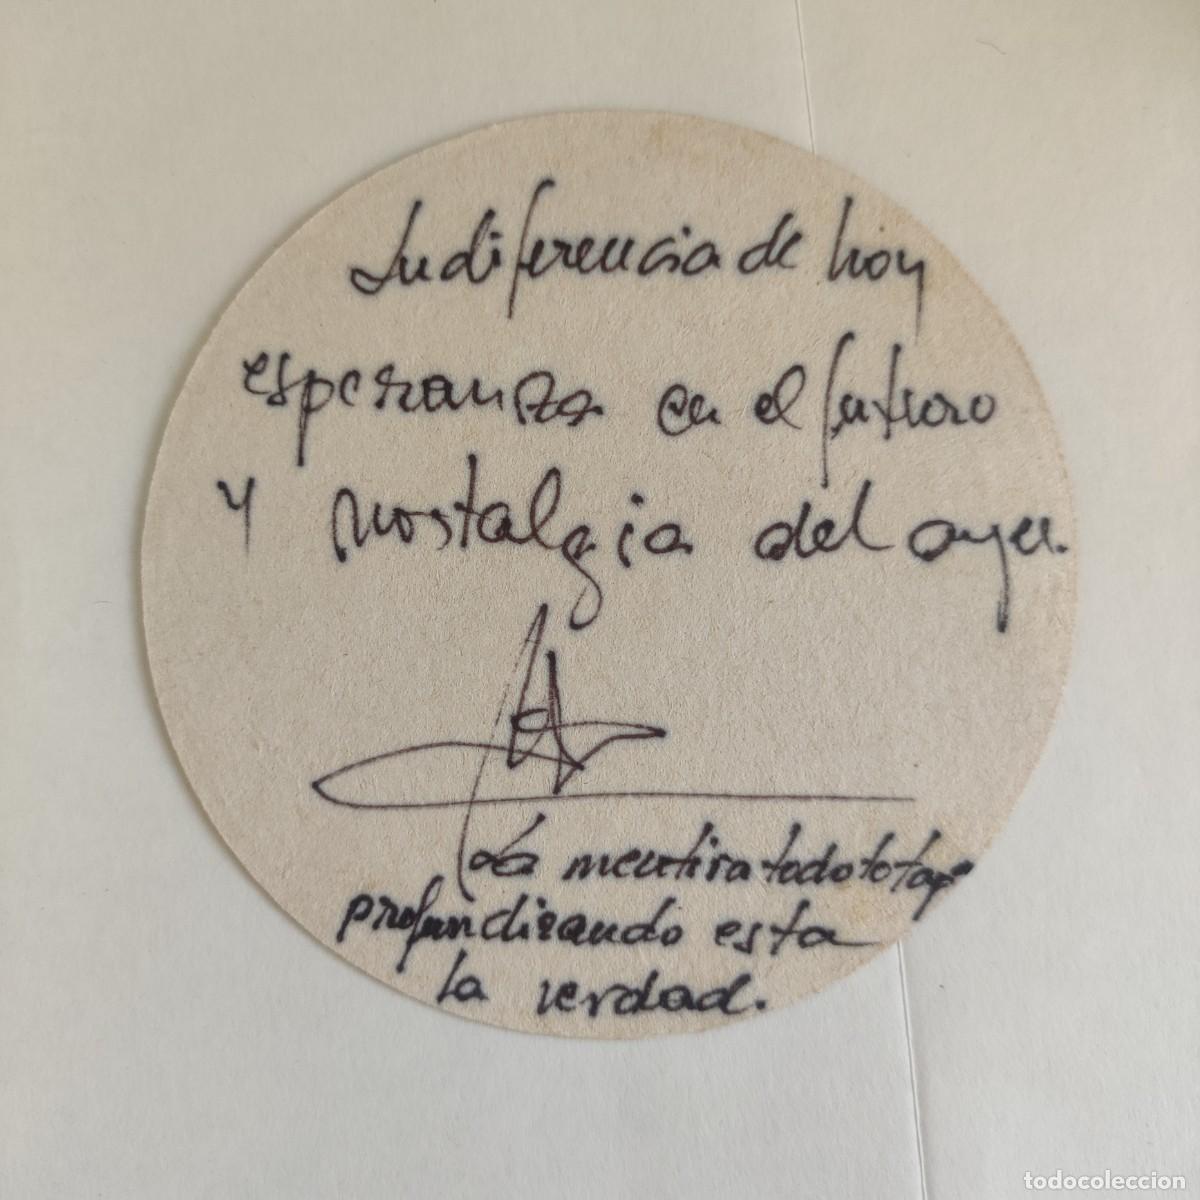 Indiferencia de hoy
esperanza en el futuro
y nostalgia del ayer.
La mentira todo lo tapa
profundizando esta
la verdad.
todocoleccion